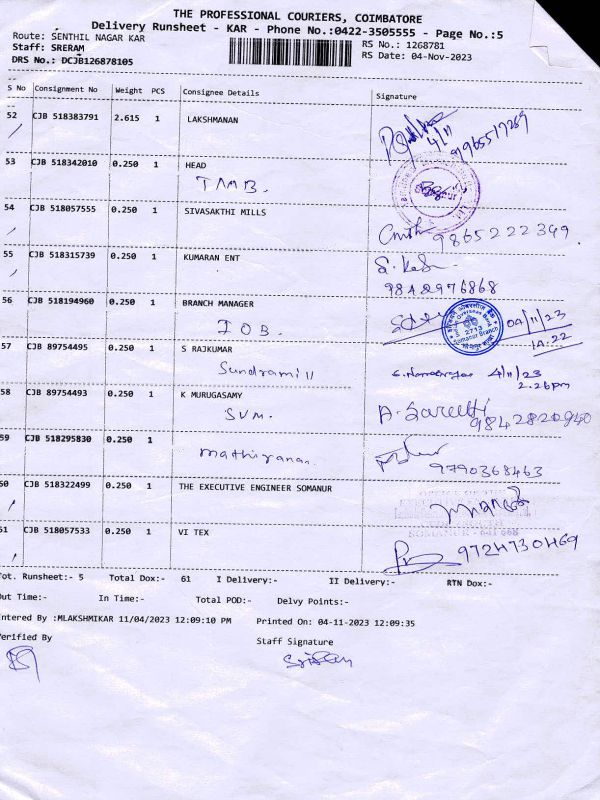 THE PROFESSIONAL COURIERS, COIMBATORE
Delivery Runsheet - KAR - Phone No.:0422-3505555 - Page No.:5
Route: SENTHIL NAGAR KAR
RS No.: 1268781
Staff: SRERAM
RS Date: 04-Nov-2023
DRS No.: DCJB126878105
S No Consignment No Weight PCS Consignee Details Signature
52 CJB 518383791 2.615 1 LAKSHMANAN
4/11
9965517269
53 CJB 518342010 0.250 1 HEAD
TMB.
54 CJB 518057555 0.250 1 SIVASAKTHI MILLS
9865222349.
55 CJB 518315739 0.250 1 KUMARAN ENT
9842976868
56 CJB 518194960 0.250 1 BRANCH MANAGER
IOB. 2713 Somanur Branch 04/11/23
57 CJB 89754495 0.250 1 S RAJKUMAR
Sundram 4/11/23
2.26pm
58 CJB 89754493 0.250 1 K MURUGASAMY
SVM. 9842820940
59 CJB 518295830 0.250 1
9790368463
60 CJB 518322499 0.250 1 THE EXECUTIVE ENGINEER SOMANUR
61 CJB 518057533 0.250 1 VI TEX
9724730469
Tot. Runsheet:- 5 Total Dox:- 61 I Delivery:- II Delivery:- RTN Dox:-
Out Time:- In Time:- Total POD:- Delvy Points:-
Entered By :MLAKSHMIKAR 11/04/2023 12:09:10 PM Printed On: 04-11-2023 12:09:35
Verified By Staff Signature